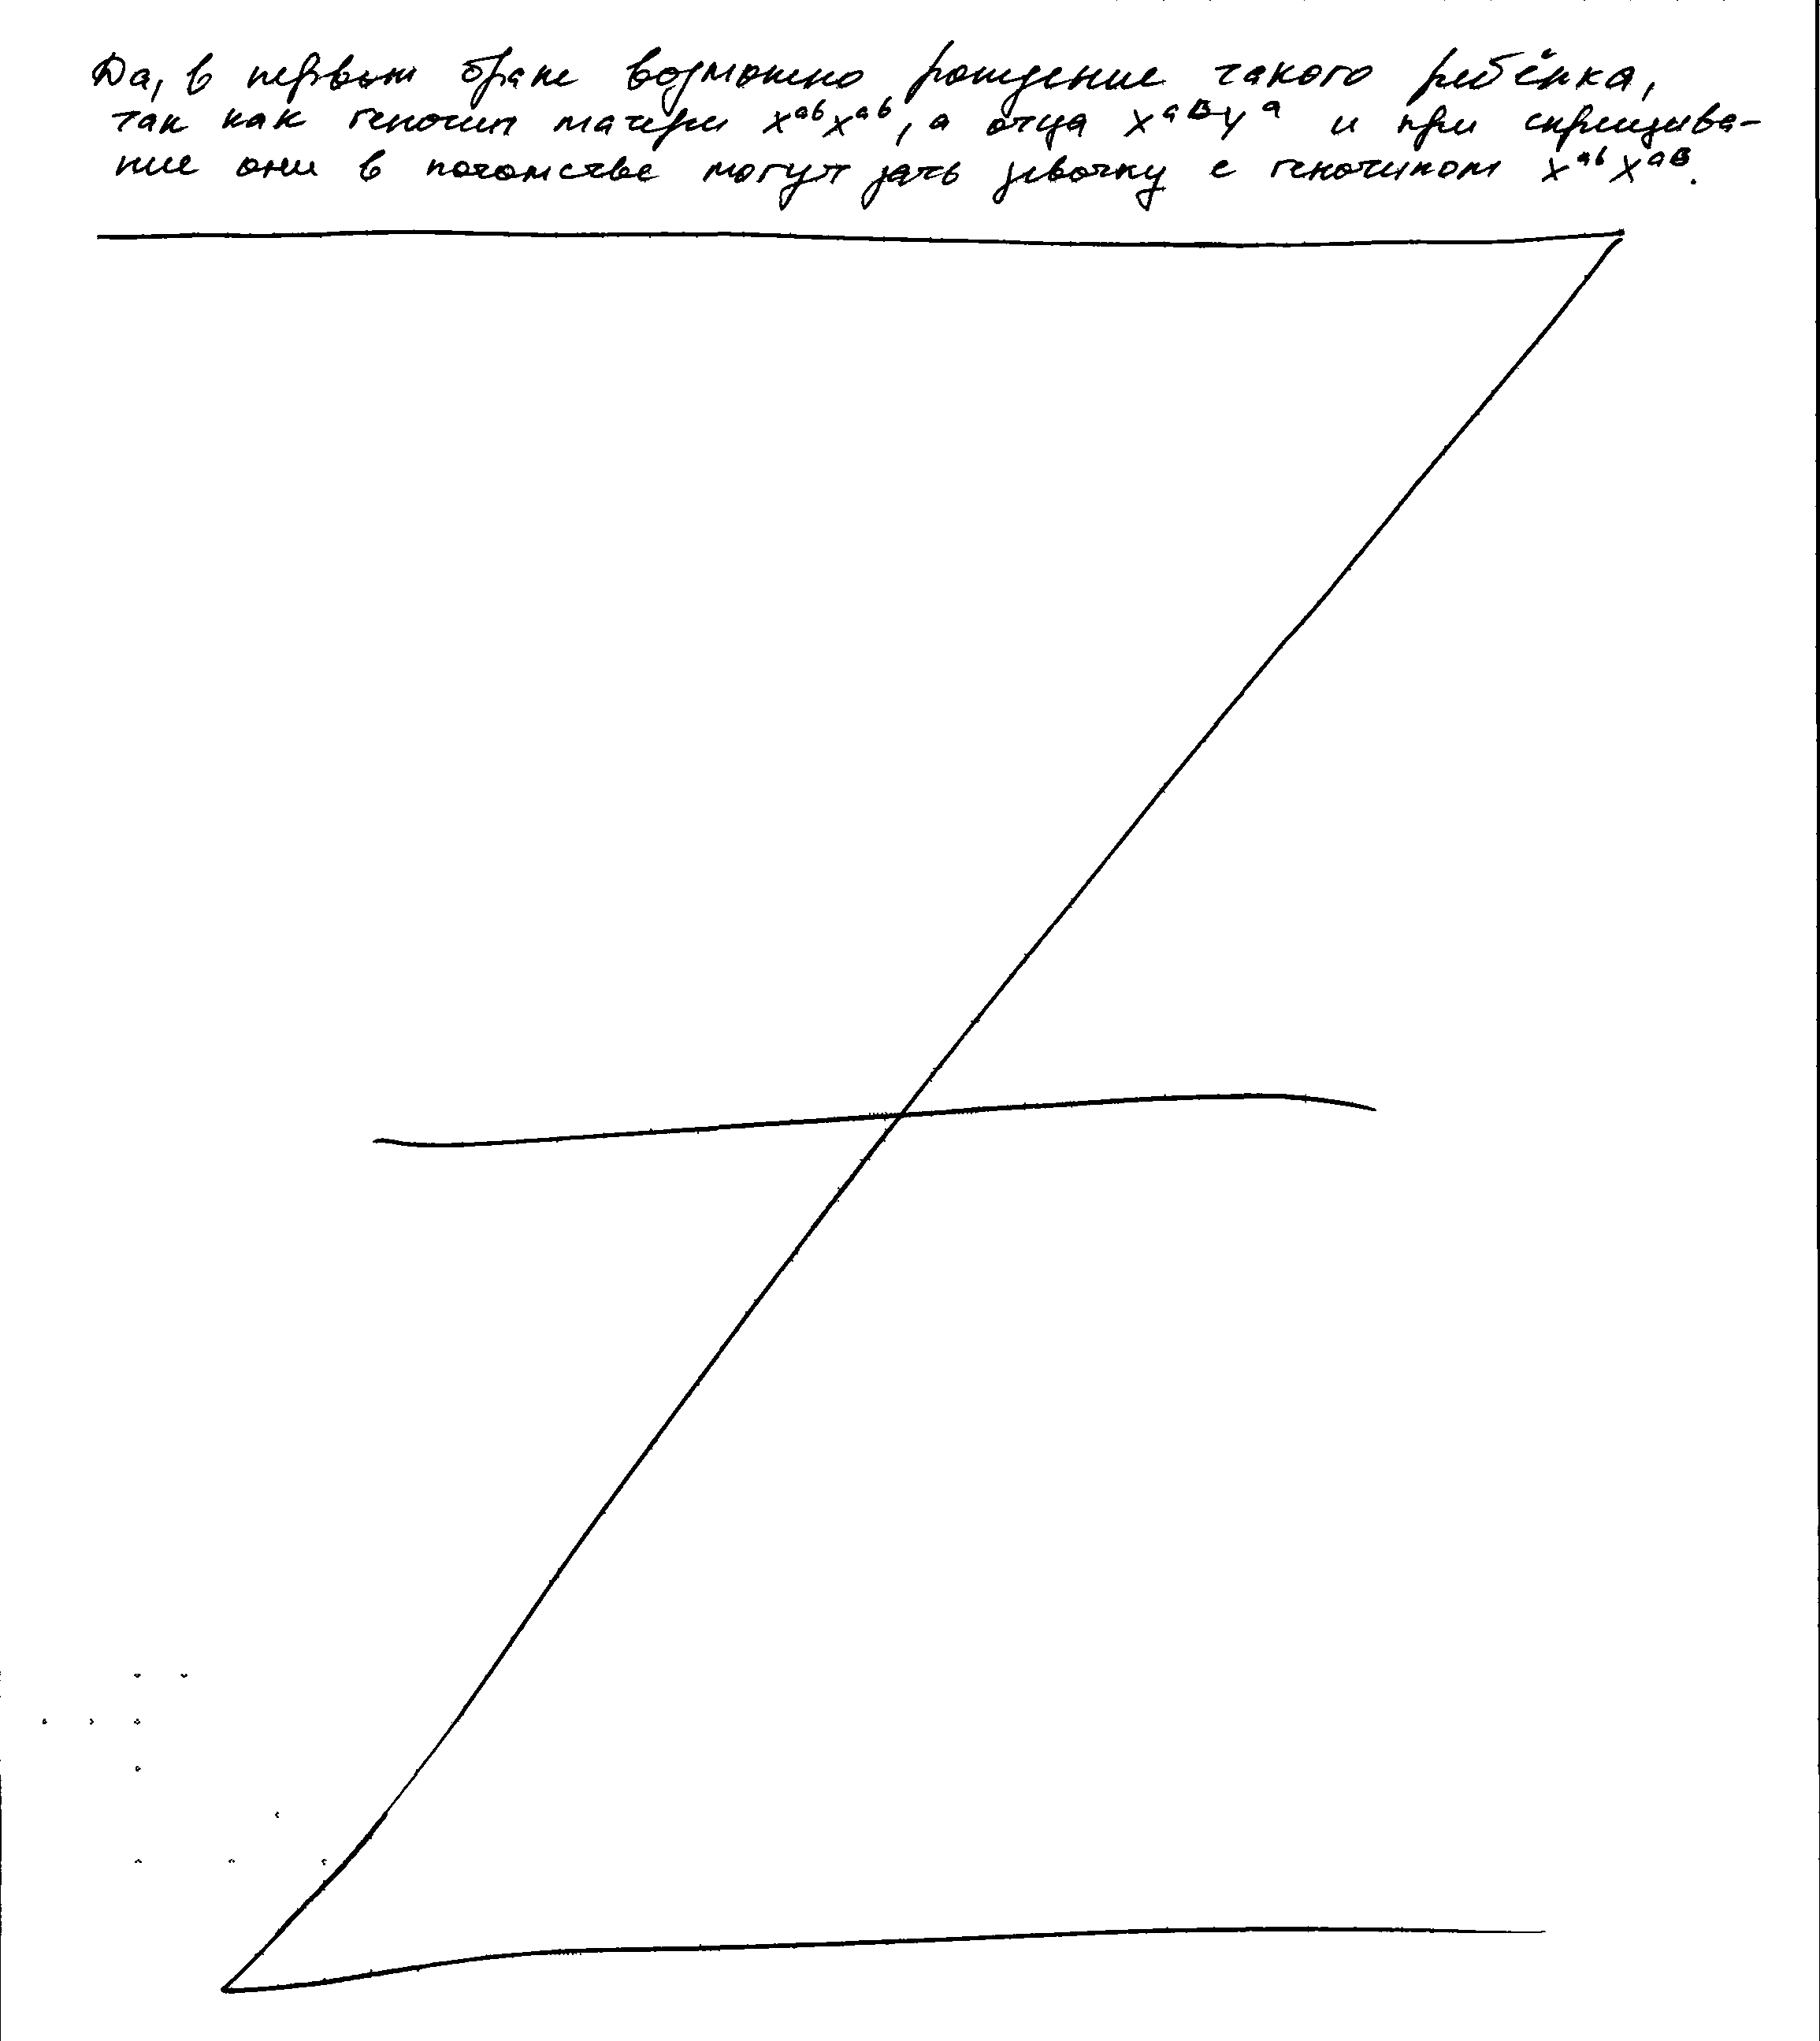 Да, в первом браке возможно рождение такого ребёнка,
так как генотип матери xᵃᵇxᵃᵇ, а отца xᵃᴮyᵃ и при скрещива-
ние они в потомстве могут дать девочку с генотипом xᵃᵇxᵃᴮ.